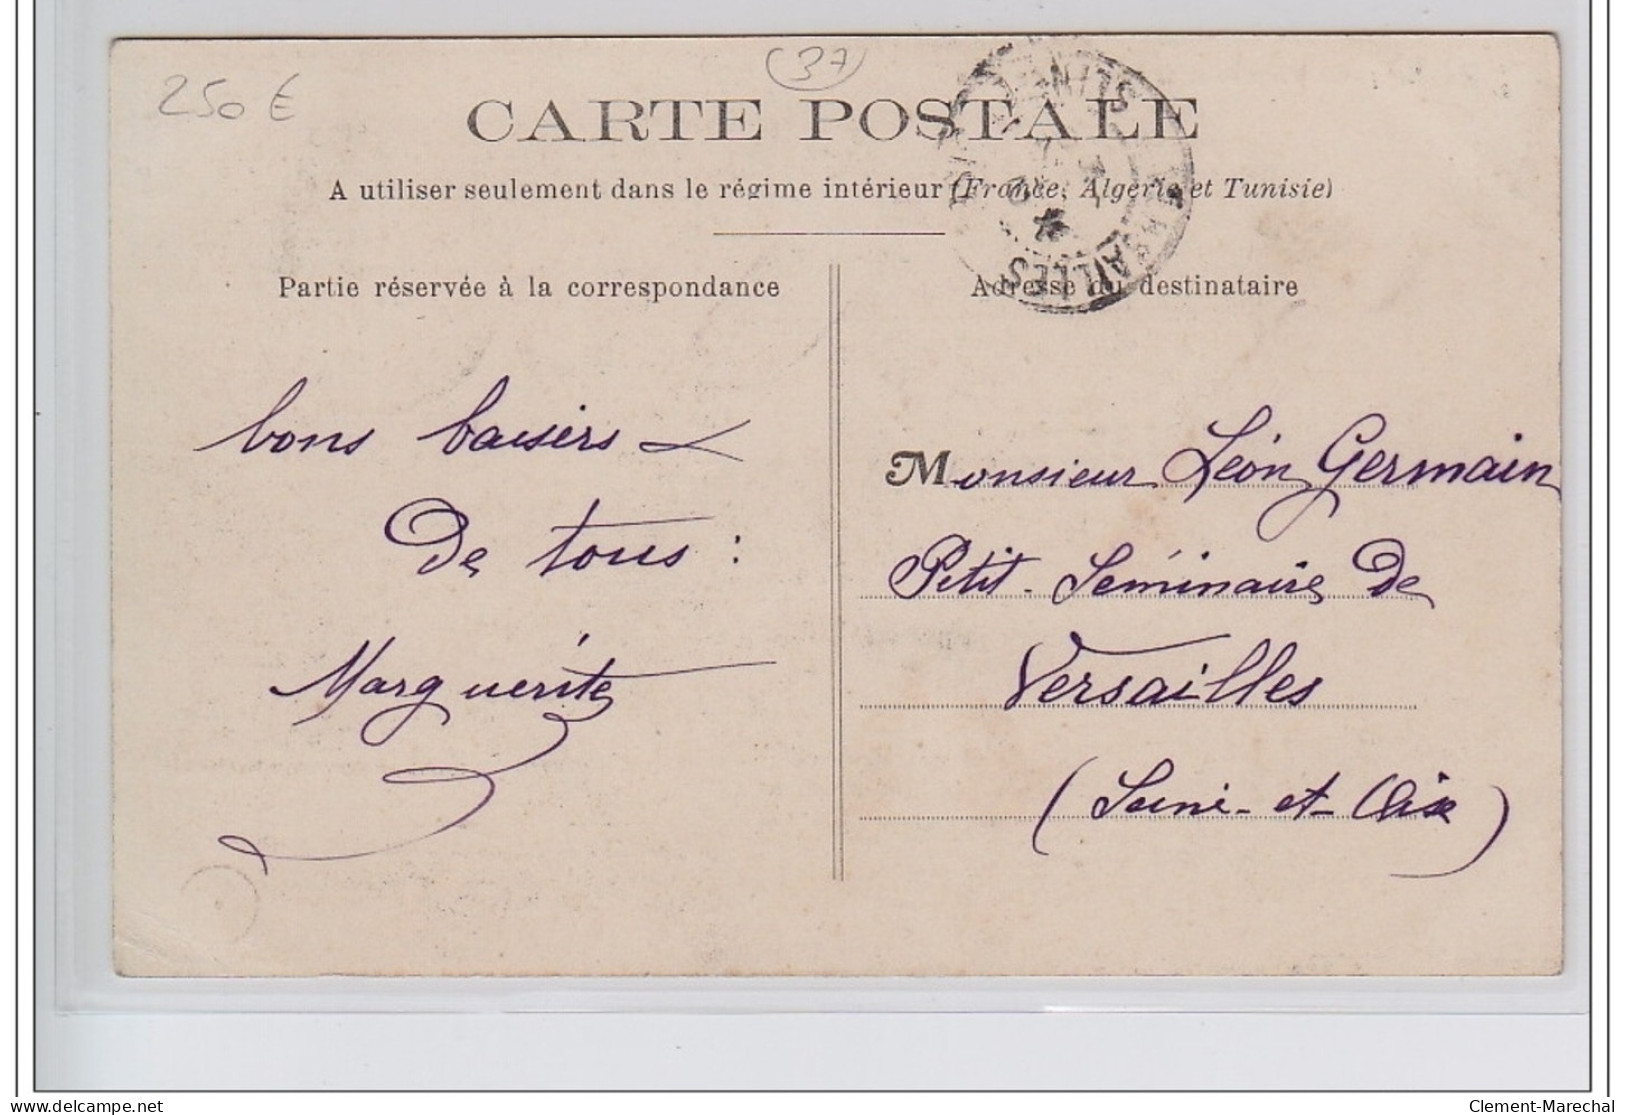 250 €
37
CARTE POSTALE
A utiliser seulement dans le régime intérieur (France, Algérie et Tunisie)
Partie réservée à la correspondance
bons baisers
de tous :
Marguerite
Adresse du destinataire
VERSAILLES
Monsieur Léon Germain
Petit-Séminaire de
Versailles
(Seine-et-Oise)
delcampe.net
Clement-Marechal